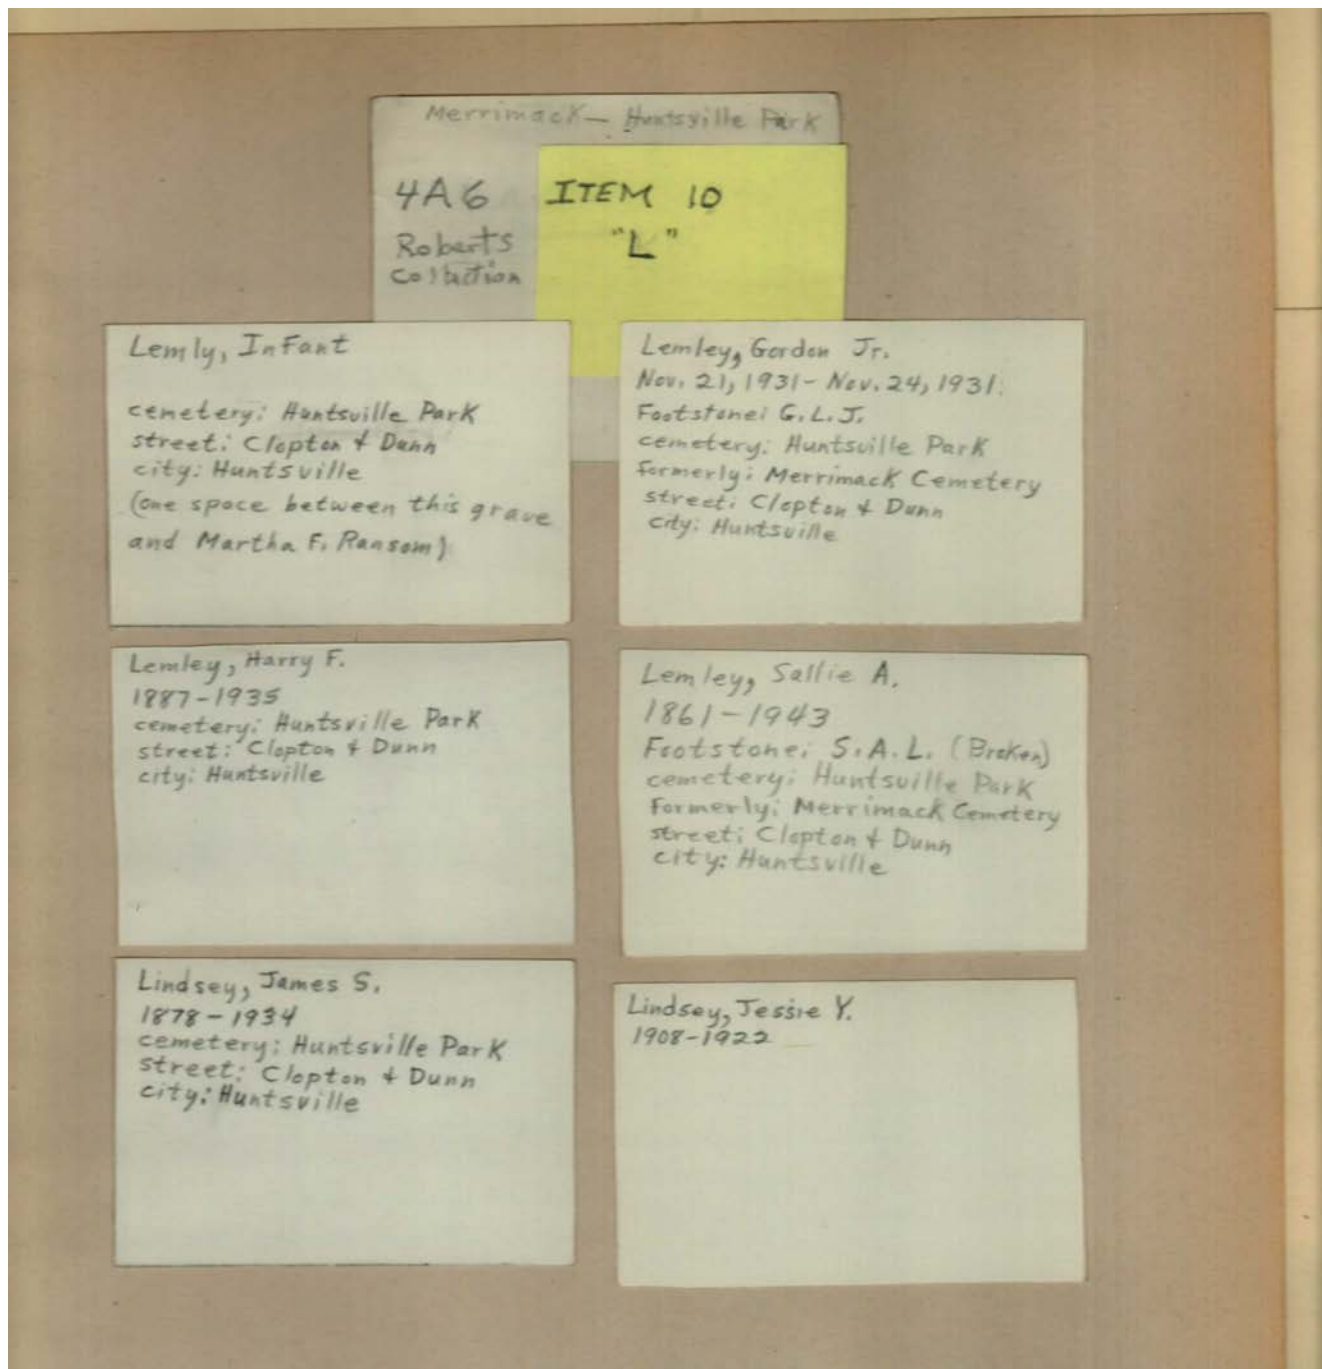 Merrimack — Huntsville Park
4A6
Roberts
Collection
ITEM 10
"L"
Lemly, Infant
cemetery: Huntsville Park
street: Clopton & Dunn
city: Huntsville
(one space between this grave
and Martha F. Ransom)
Lemley, Gordon Jr.
Nov. 21, 1931 - Nov. 24, 1931.
Footstone: G.L.J.
cemetery: Huntsville Park
formerly: Merrimack Cemetery
street: Clopton & Dunn
city: Huntsville
Lemley, Harry F.
1887-1935
cemetery: Huntsville Park
street: Clopton & Dunn
city: Huntsville
Lemley, Sallie A.
1861-1943
Footstone: S.A.L. (Broken)
cemetery: Huntsville Park
Formerly: Merrimack Cemetery
street: Clopton & Dunn
city: Huntsville
Lindsey, James S.
1878-1934
cemetery: Huntsville Park
street: Clopton & Dunn
city: Huntsville
Lindsey, Jessie Y.
1908-1922